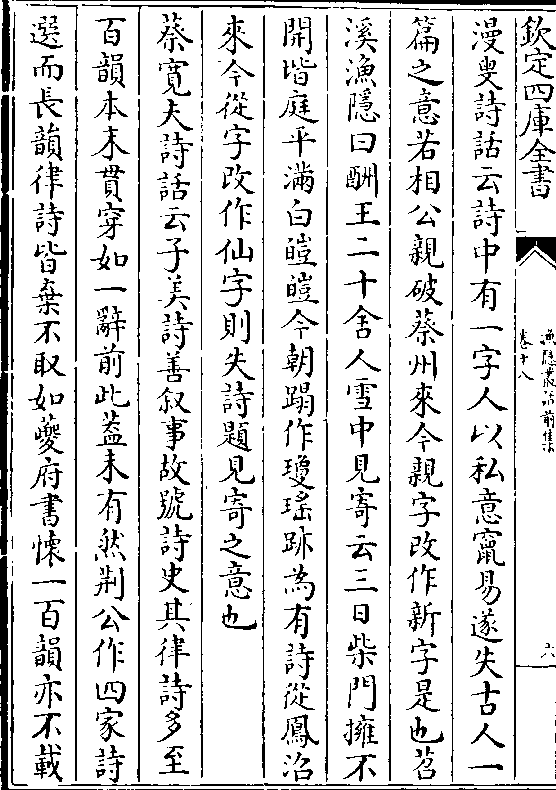 欽定四庫全書
漁隱叢話前集
卷十八
六
漫叟詩話云詩中有一字人以私意竄易遂失古人一
篇之意若相公親破蔡州來今親字改作新字是也苕
溪漁隱曰酬王二十舍人雪中見寄云三日柴門擁不
開堦庭平滿白皚皚今朝蹋作瓊瑤跡為有詩從鳳沼
來今從字改作仙字則失詩題見寄之意也
蔡寛夫詩話云子美詩善叙事故號詩史其律詩多至
百韻本末貫穿如一辭前此葢未有然荆公作四家詩
選而長韻律詩皆棄不取如夔府書懷一百韻亦不載